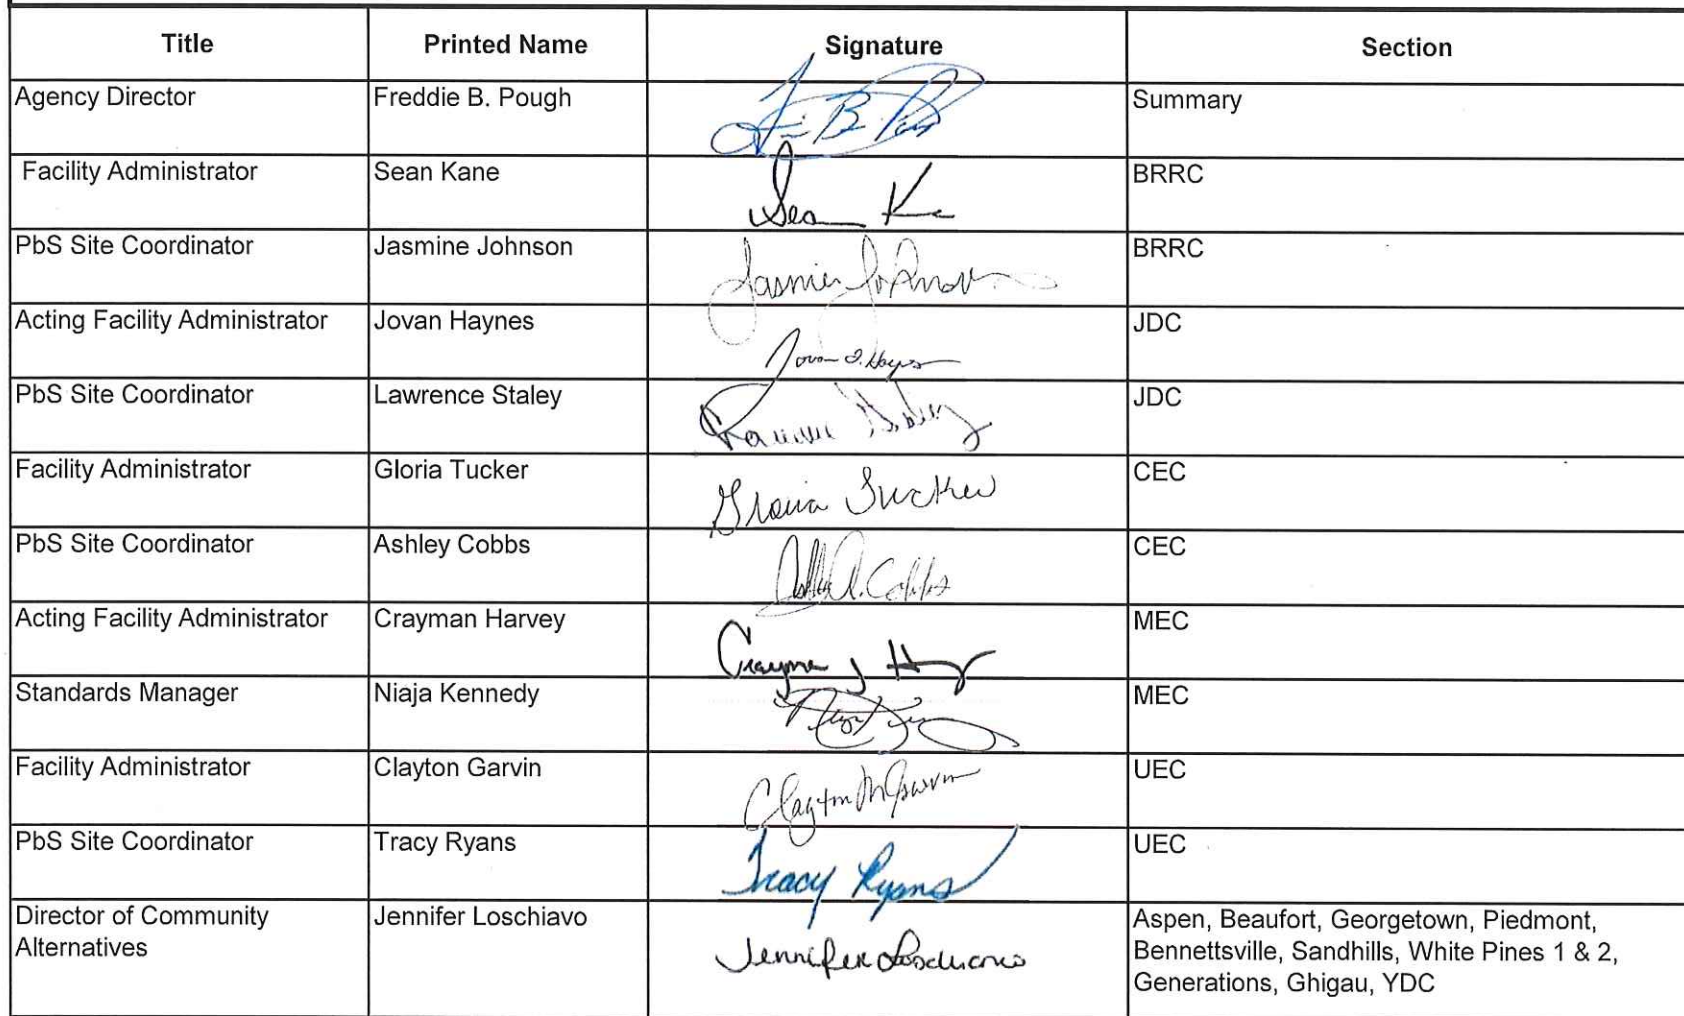 Title Printed Name Signature Section
Agency Director Freddie B. Pough Summary
Facility Administrator Sean Kane Sean K BRRC
PbS Site Coordinator Jasmine Johnson BRRC
Acting Facility Administrator Jovan Haynes JDC
PbS Site Coordinator Lawrence Staley JDC
Facility Administrator Gloria Tucker Gloria Tucker CEC
PbS Site Coordinator Ashley Cobbs Ashley A. Cobbs CEC
Acting Facility Administrator Crayman Harvey MEC
Standards Manager Niaja Kennedy MEC
Facility Administrator Clayton Garvin Clayton M Garvin UEC
PbS Site Coordinator Tracy Ryans Tracy Ryans UEC
Director of Community Jennifer Loschiavo Jennifer Loschiavo Aspen, Beaufort, Georgetown, Piedmont,
Alternatives Bennettsville, Sandhills, White Pines 1 & 2,
Generations, Ghigau, YDC